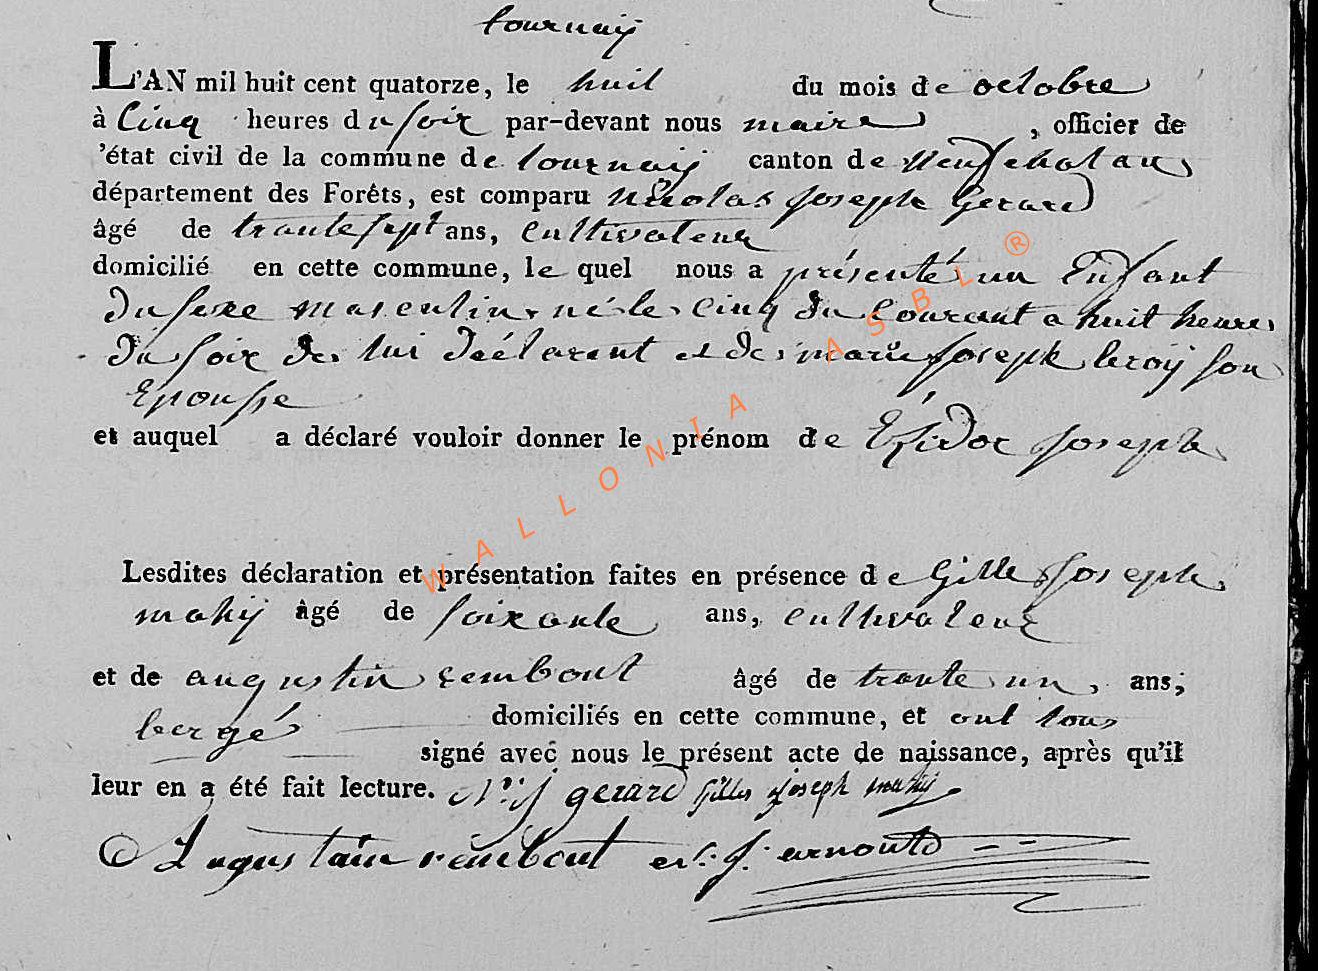 tournaÿ
L'AN mil huit cent quatorze, le huit du mois de octobre
à Cinq heures du soir par-devant nous maire , officier de
'état civil de la commune de tournaÿ canton de Neufchatau
département des Forêts, est comparu Nicolas Joseph Gerard
âgé de trante sept ans, Cultivateur
domicilié en cette commune, le quel nous a présenté un Enfant
Du sexe masculin né le Cinq du Courant a huit heures
Du soir de lui Déclarant et de marie joseph leroÿ son
Epousse
et auquel a déclaré vouloir donner le prénom de Joseph
Lesdites déclaration et présentation faites en présence de Gille Joseph
mahÿ âgé de soixante ans, Cultivateur
et de augustin rembout âgé de trante un ans;
bergé domiciliés en cette commune, et ont tous
signé avec nous le présent acte de naissance, après qu'il
leur en a été fait lecture. N: J gerard Gilles Joseph mahÿ
Augustain rembout J: arnould
WALLONIA ASBL ®